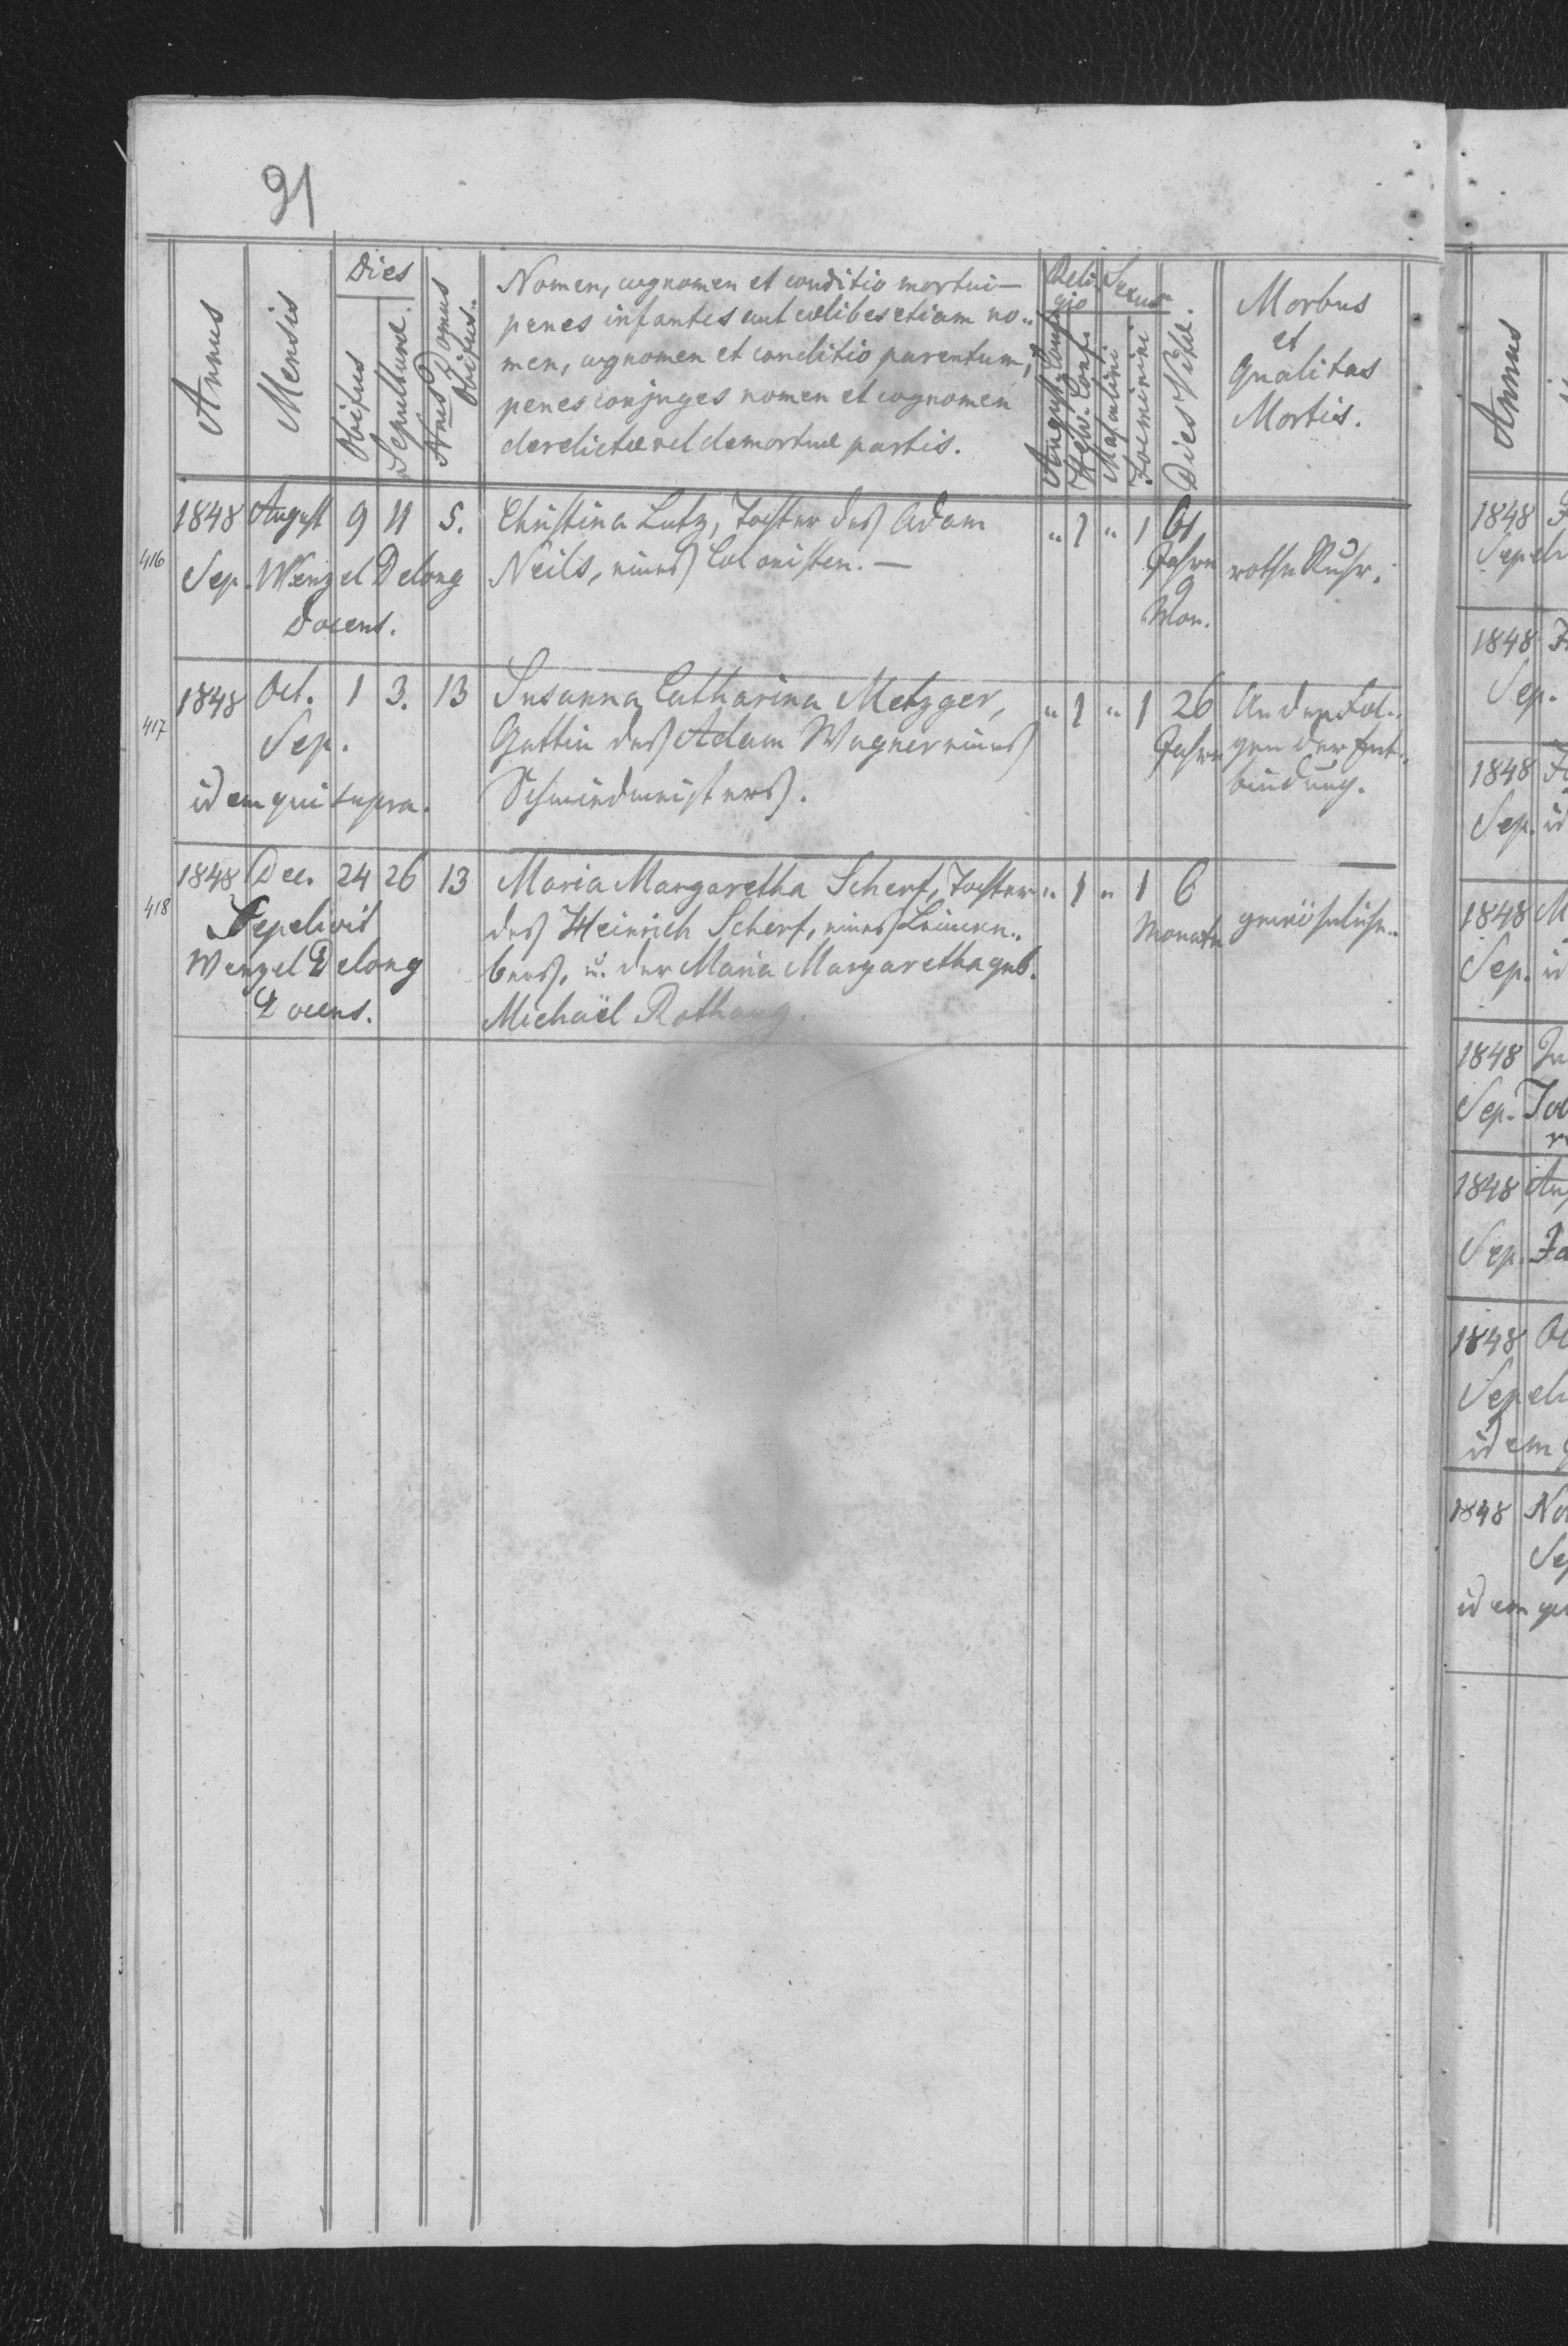 91
Annus
Mensis
Dies
Obitus
Sepulturae.
Nrus Domus
Obitus.
Nomen, cognomen et conditio mortui—
penes infantes aut coelibes etiam no-
men, cognomen et conditio parentum,
penes conjuges nomen et cognomen
derelictae vel demortuae partis.
Reli-
gio
August. Conf.
Helv. Conf.
Masculini
Foeminini
Sexus
Dies Vitae.
Morbus
et
Qualitas
Mortis.
1848 August 9 11 5. Christina Lutz, Tochter des Adam " 1 " 1 61
416 Sep. Wenzel Delong Neils, eines Colonisten. — Jahre rothe Ruhr.
9
Docens. Mon.
1848 Oct. 1 3. 13 Susanna Catharina Metzger, " 1 " 1 26 An den Fol-
417 Sep. Gattin des Adam Wagner eines Jahre gen der Ent-
idem qui supra. Schmiedmeisters. bindung.
1848 Dec. 24 26 13 Maria Margaretha Scherf, Tochter " 1 " 1 6
418 Sepelivit des Heinrich Scherf, eines Monate gewöhnliche.
Wenzel Delong u. der Maria Margaretha geb.
Docens. Michaël Rothaug.
Annus
1848
1848
Sep.
1848
Sep. id
1848 M
Sep. id
1848
Sep.
1848
Sep.
1848
idem
1848
idem